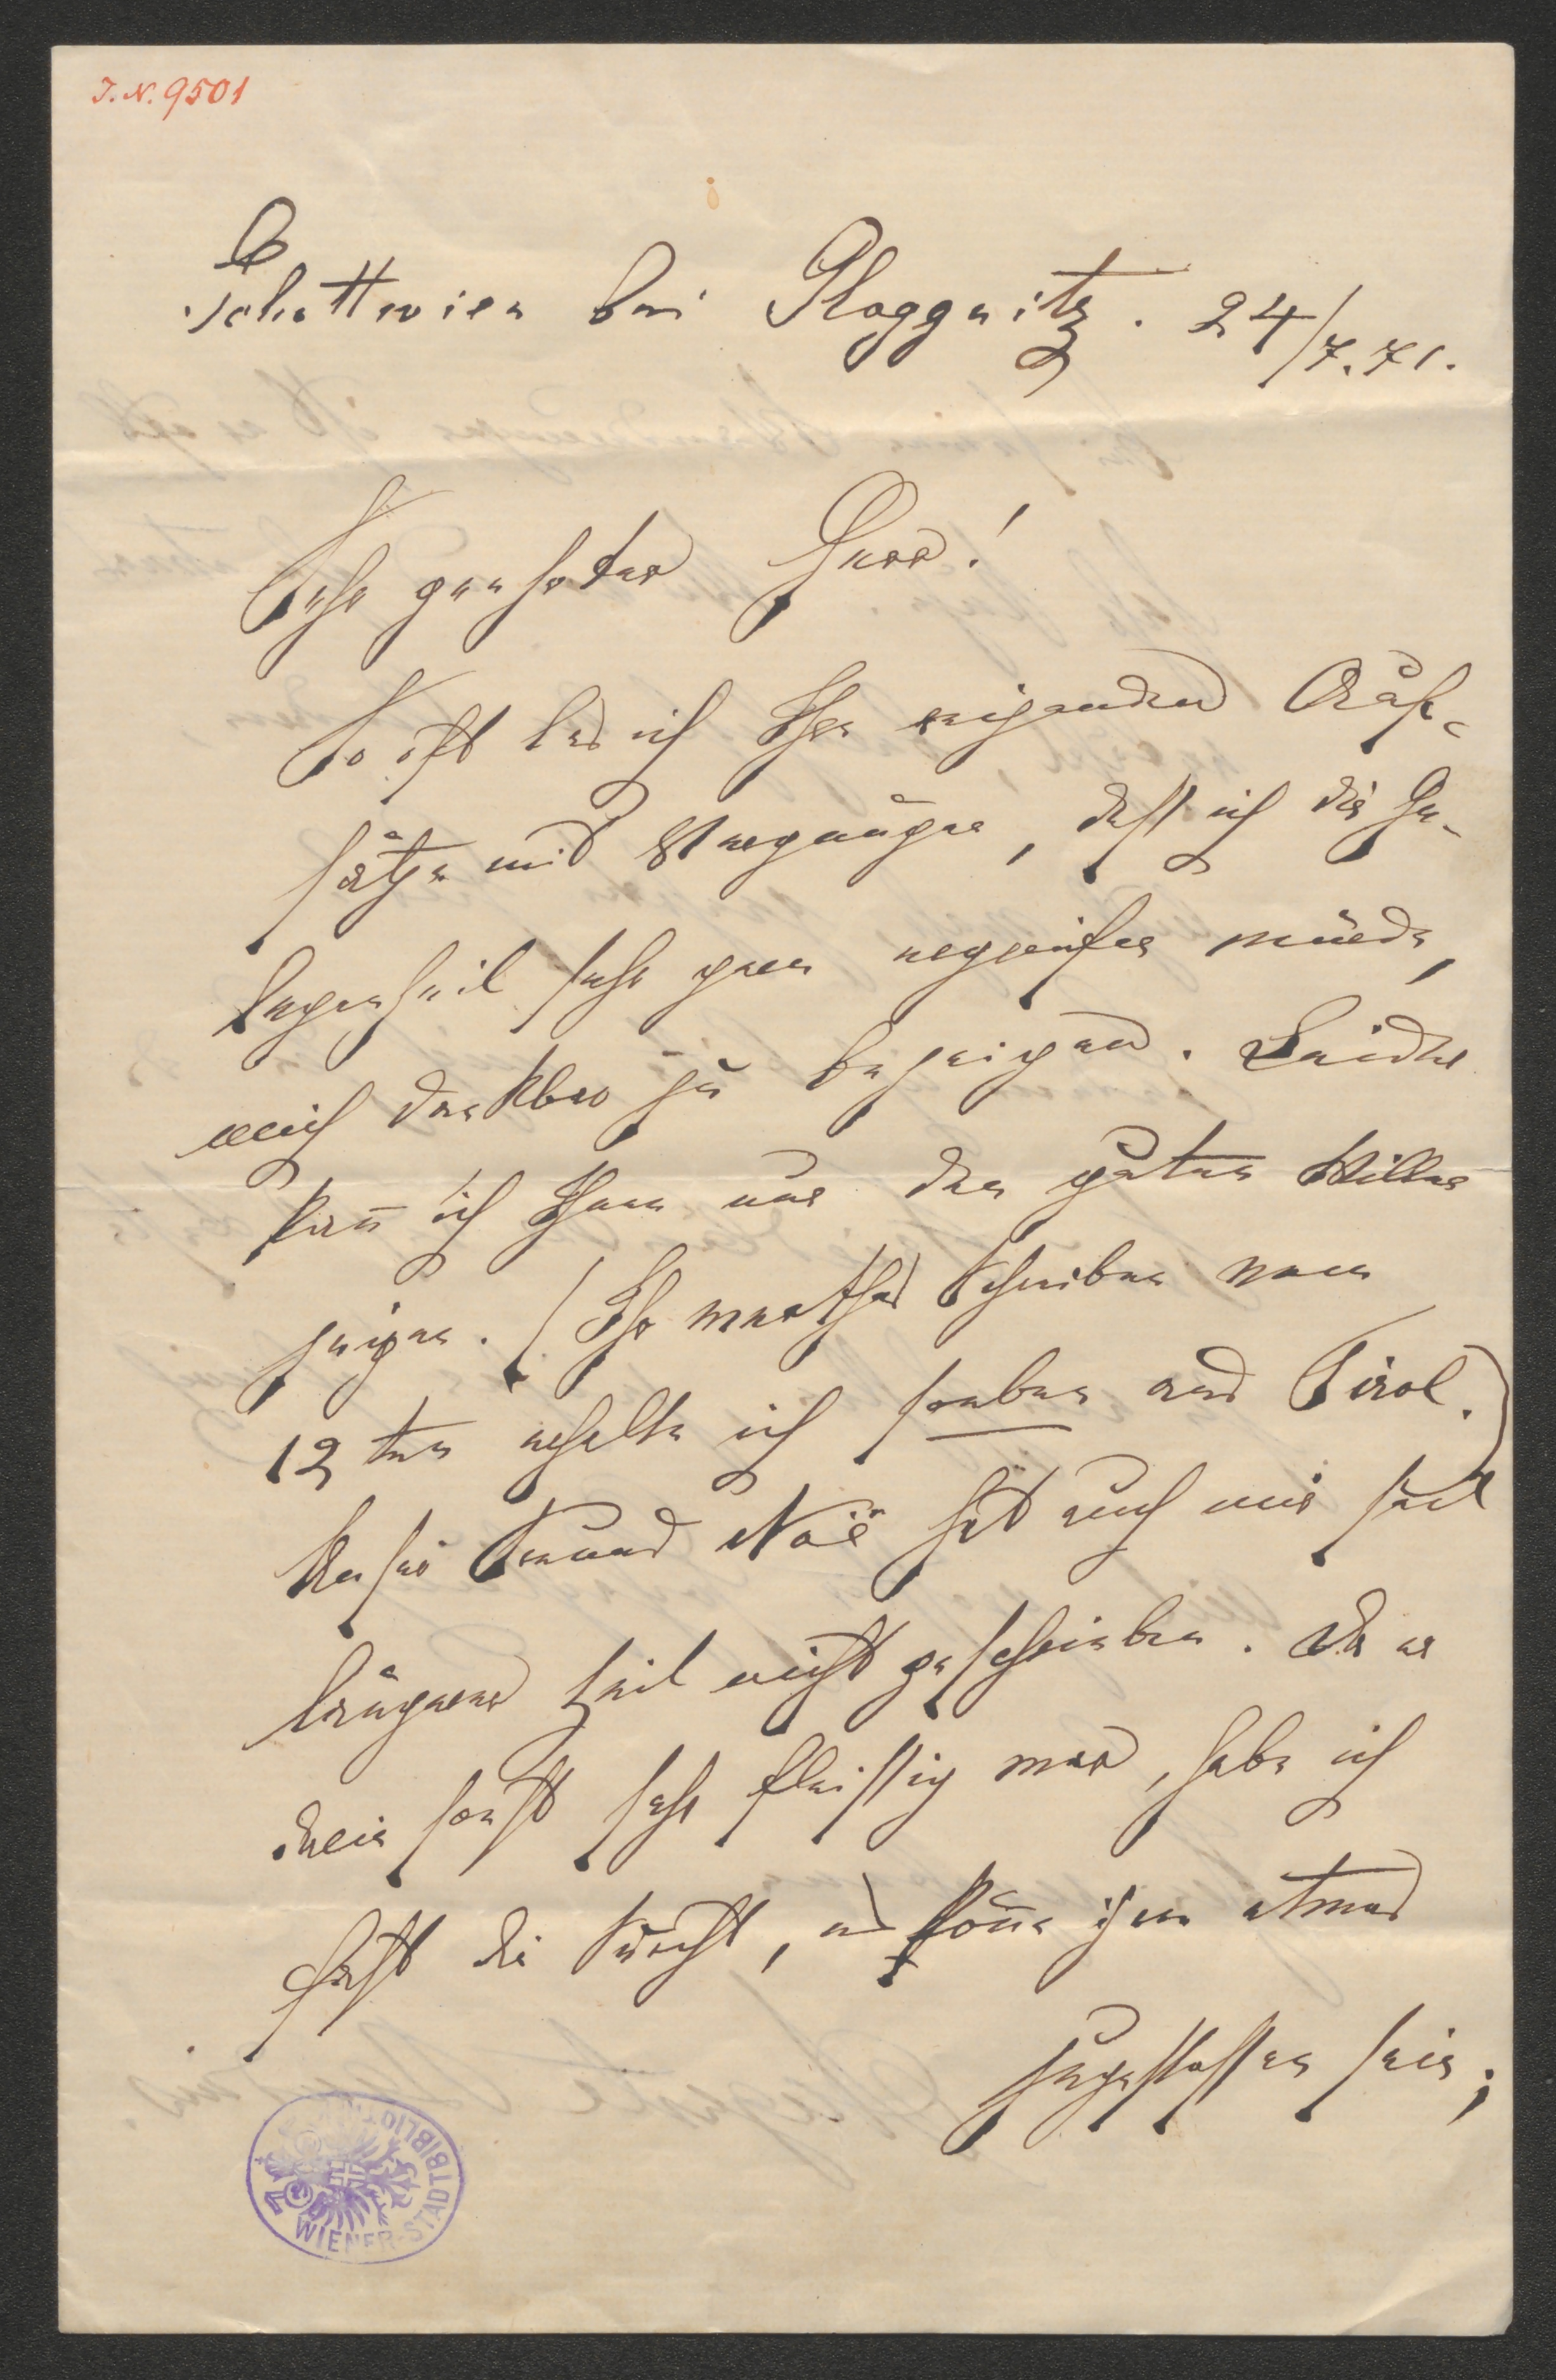 I. N. 9501
Schottwien bei Gloggnitz. 24/7. 71.
Sehr geehrter Herr!
So oft las ich Ihre reizenden Auf-
sätze mit Vergnügen, daß ich die Ge-
legenheit sehr gern ergreifen würde,
mich dankbar zu bezeigen. Leider
kan̄ ich Ihnen nur den guten Willen
zeigen. (Ihr werthes Schreiben vom
12ten erhalte ich soeben aus Tirol.)
Unser Freund Noë hat auch mir seit
längerer Zeit nicht geschrieben. Da er
darin sonst sehr fleißig war, habe ich
fast die Furcht, es kön̄e ihm etwas
zugestoßen sein;
WIENER STADTBIBLIOTHEK